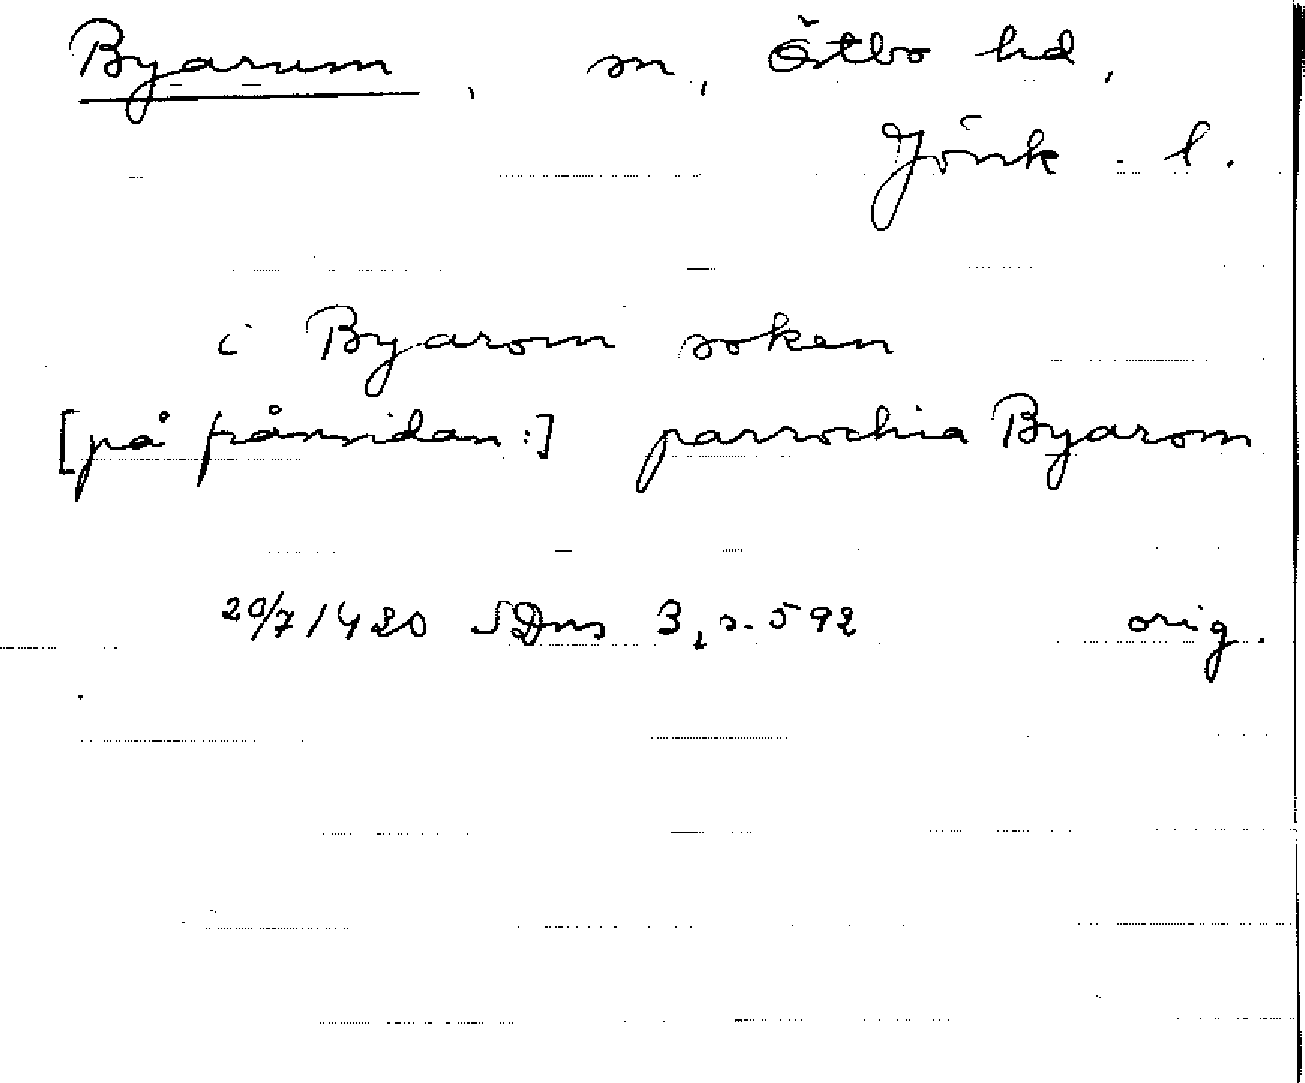 Byarum, sn, Östbo hd,
Jönk. l.
i Byarom soken
[på frånsidan:] parrochia Byarom
20/7 1420 SDns 3, s. 592 orig.